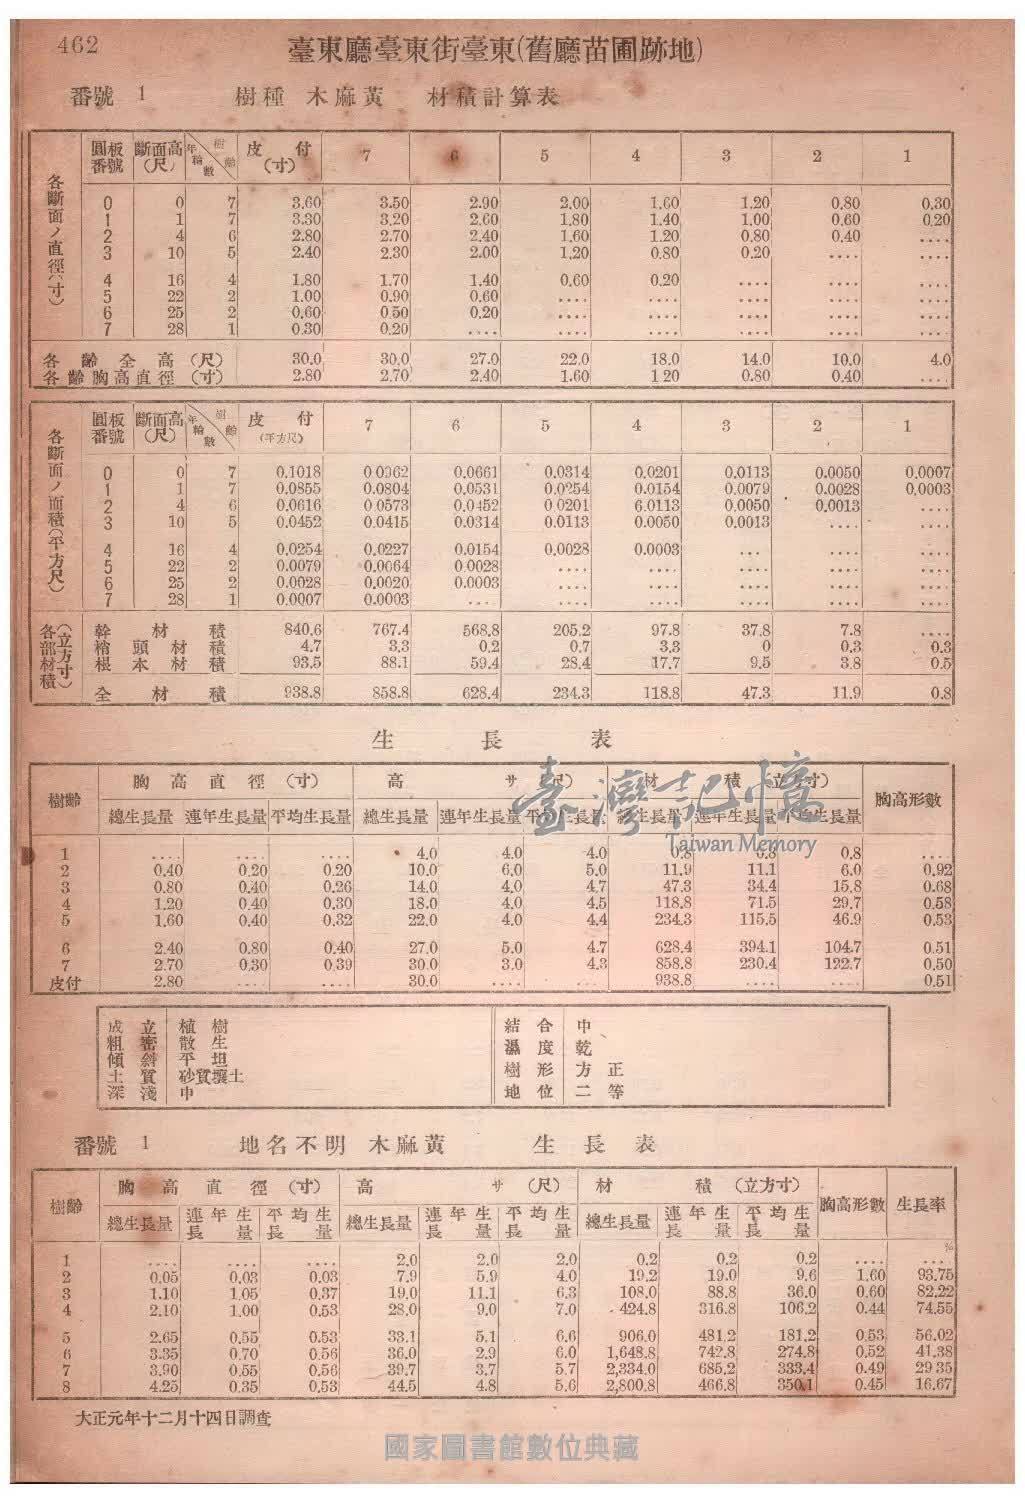 462
臺東廳臺東街臺東(舊廳苗圃跡地)
番號 1 樹種 木麻黃 材積計算表
各斷面ノ直徑(寸) 圓板番號 斷面高(尺) 年輪數 樹齡 皮付(寸) 7 6 5 4 3 2 1
0 0 7 3.60 3.50 2.90 2.00 1.60 1.20 0.80 0.30
1 1 7 3.30 3.20 2.60 1.80 1.40 1.00 0.60 0.20
2 4 6 2.80 2.70 2.40 1.60 1.20 0.80 0.40 ....
3 10 5 2.40 2.30 2.00 1.20 0.80 0.20 .... ....
4 16 4 1.80 1.70 1.40 0.60 0.20 .... .... ....
5 22 2 1.00 0.90 0.60 .... .... .... .... ....
6 25 2 0.60 0.50 0.20 .... .... .... .... ....
7 28 1 0.30 0.20 .... .... .... .... .... ....
各齡全高(尺) 30.0 30.0 27.0 22.0 18.0 14.0 10.0 4.0
各齡胸高直徑(寸) 2.80 2.70 2.40 1.60 1 20 0.80 0.40 ....
各斷面ノ面積(平方尺) 圓板番號 斷面高(尺) 年輪數 樹齡 皮付(平方尺) 7 6 5 4 3 2 1
0 0 7 0.1018 0 0962 0.0661 0.0314 0.0201 0.0113 0.0050 0.0007
1 1 7 0.0855 0.0804 0.0531 0.0254 0.0154 0.0079 0.0028 0.0003
2 4 6 0.0616 0.0573 0.0452 0 0201 6.0113 0.0050 0.0013 ....
3 10 5 0.0452 0.0415 0.0314 0.0113 0.0050 0.0013 .... ....
4 16 4 0.0254 0.0227 0.0154 0.0028 0.0003 ... .... ....
5 22 2 0.0079 0.0064 0.0028 .... .... .... .... ....
6 25 2 0.0028 0.0020 0.0003 .... .... .... .... ....
7 28 1 0.0007 0.0003 .... .... .... .... .... ....
各部材積(立方寸) 幹材積 840.6 767.4 568.8 205.2 97.8 37.8 7.8 ....
梢頭材積 4.7 3.3 0.2 0.7 3.3 0 0.3 0.3
根本材積 93.5 88.1 59.4 28.4 17.7 9.5 3.8 0.5
全材積 938.8 858.8 628.4 234.3 118.8 47.3 11.9 0.8
生長表
樹齡 胸高直徑(寸) 高サ(尺) 材積(立方寸) 胸高形數
總生長量 連年生長量 平均生長量 總生長量 連年生長量 平均生長量 總生長量 連年生長量 平均生長量
1 .... .... .... 4.0 4.0 4.0 0.8 0.8 0.8 ....
2 0.40 0.20 0.20 10.0 6.0 5.0 11.9 11.1 6.0 0.92
3 0.80 0.40 0.26 14.0 4.0 4.7 47.3 34.4 15.8 0.68
4 1.20 0.40 0.30 18.0 4.0 4.5 118.8 71.5 29.7 0.58
5 1.60 0.40 0.32 22.0 4.0 4.4 234.3 115.5 46.9 0.53
6 2.40 0.80 0.40 27.0 5.0 4.7 628.4 394.1 104.7 0.51
7 2.70 0.30 0.39 30.0 3.0 4.3 858.8 230.4 122.7 0.50
皮付 2.80 .... .... 30.0 .... ... 938.8 .... .... 0.51
臺灣記憶
Taiwan Memory
成立 植樹 結合 中
粗密 散生 濕度 乾
傾斜 平坦 樹形 方正
土質 砂質壤土 地位 二等
深淺 中
番號 1 地名不明 木麻黃 生長表
樹齡 胸高直徑(寸) 高サ(尺) 材積(立方寸) 胸高形數 生長率
總生長量 連年生長量 平均生長量 總生長量 連年生長量 平均生長量 總生長量 連年生長量 平均生長量
%
1 .... .... .... 2.0 2.0 2.0 0.2 0.2 0.2 .... ....
2 0.05 0.03 0.03 7.9 5.9 4.0 19.2 19.0 9.6 1.60 93.75
3 1.10 1.05 0.37 19.0 11.1 6.3 108.0 88.8 36.0 0.60 82.22
4 2.10 1.00 0.53 28.0 9.0 7.0 424.8 316.8 106.2 0.44 74.55
5 2.65 0.55 0.53 33.1 5.1 6.6 906.0 481.2 181.2 0.53 56.02
6 3.35 0.70 0.56 36.0 2.9 6.0 1,648.8 742.8 274.8 0.52 41.38
7 3.90 0.55 0.56 39.7 3.7 5.7 2,334.0 685.2 333.4 0.49 29 35
8 4.25 0.35 0.53 44.5 4.8 5.6 2,800.8 466.8 350.1 0.45 16.67
大正元年十二月十四日調查
國家圖書館數位典藏